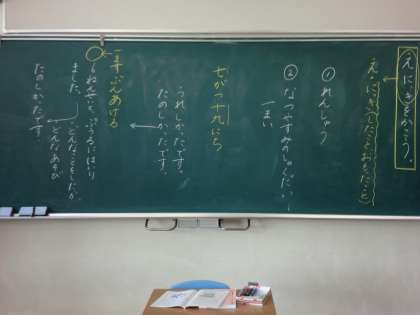 えにっきをかこう。
え・にっき(したこととおもったこと)
① れんしゅう
② なつやすみのしゅくだい
一まい
七がつ十九にち
うれしかったです。
たのしかったです。
一ますぶんあける
ぷうるにはいり
ました。
どんなことをしたか
どんなあそび
たのしかったです。